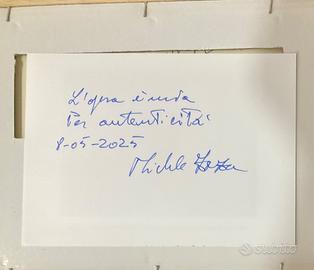 L'opera è mia
Per autenticità
8-05-2025
Michele
subito